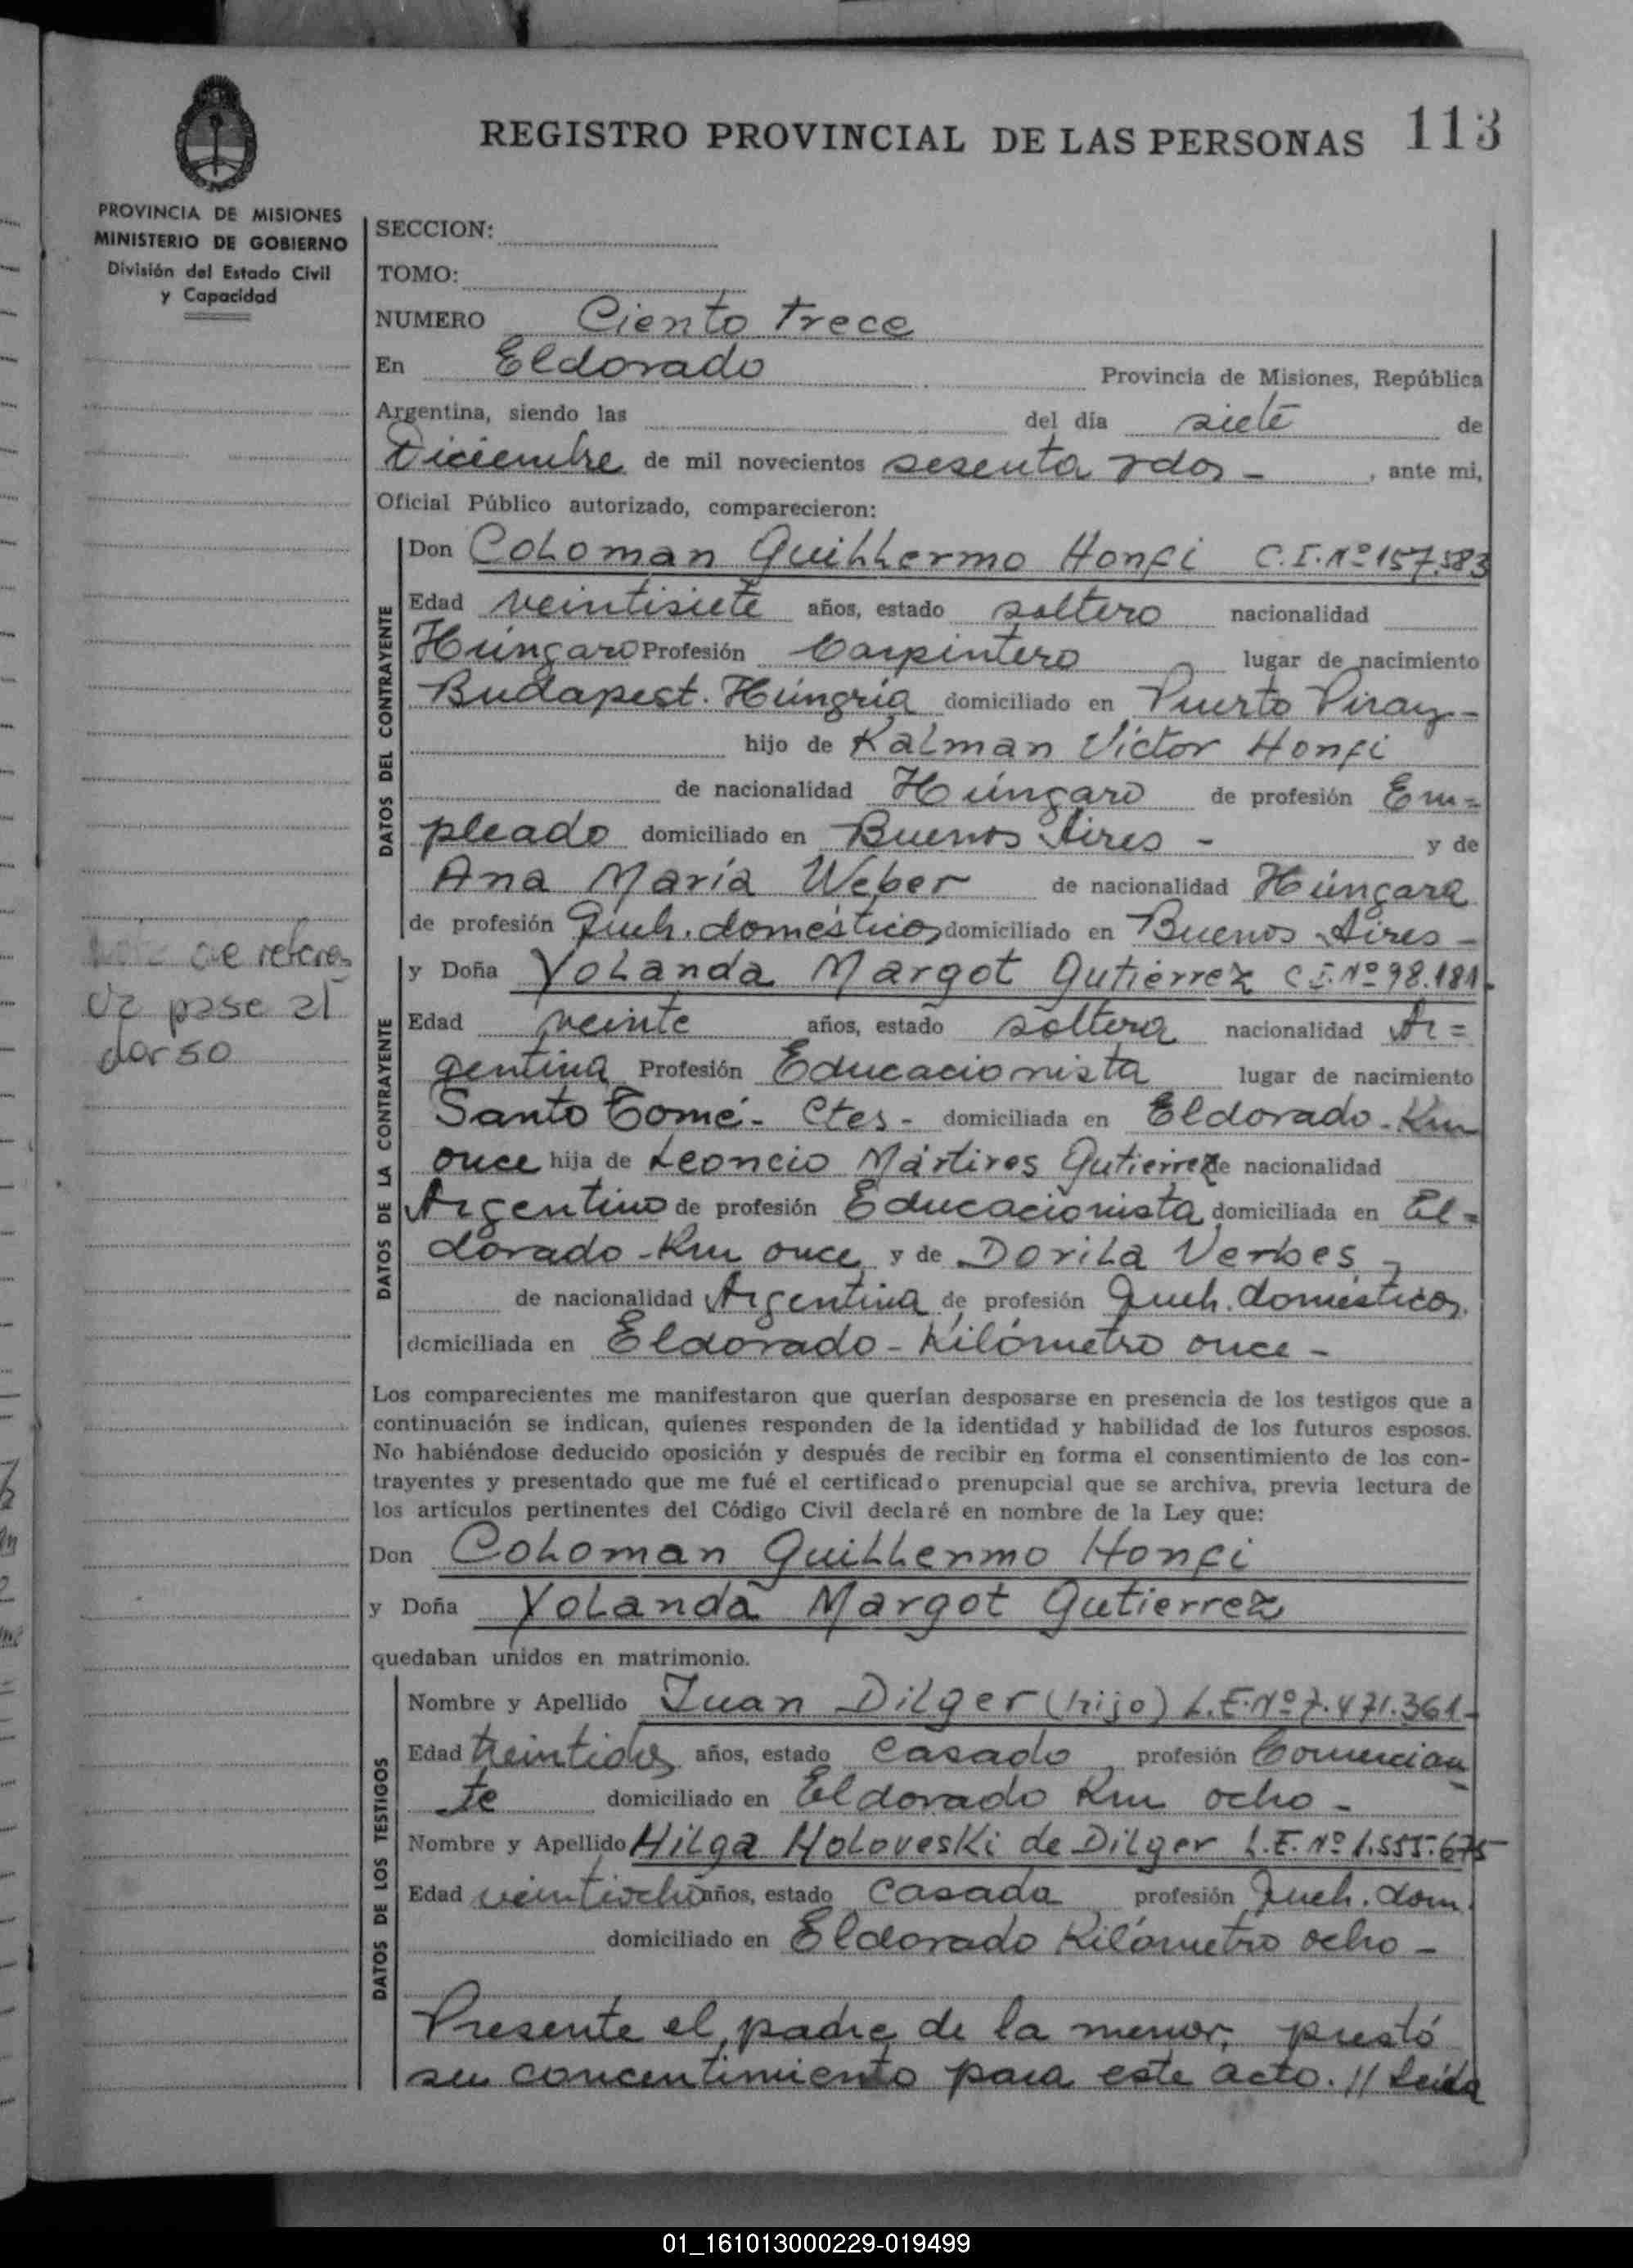 REGISTRO PROVINCIAL DE LAS PERSONAS 113
PROVINCIA DE MISIONES
MINISTERIO DE GOBIERNO
División del Estado Civil
y Capacidad
SECCION:
TOMO:
NUMERO Ciento trece
En Eldorado Provincia de Misiones, República
Argentina, siendo las del día siete de
Diciembre de mil novecientos sesenta y dos - , ante mi,
Oficial Público autorizado, comparecieron:
DATOS DEL CONTRAYENTE
Don Coloman Guillermo Honfi C.I. Nº 157.583
Edad veintisiete años, estado soltero nacionalidad
Húngaro Profesión Carpintero lugar de nacimiento
Budapest. Húngria domiciliado en Puerto Piray -
hijo de Kalman Victor Honfi
de nacionalidad Húngaro de profesión Em=
pleado domiciliado en Buenos Aires - y de
Ana María Weber de nacionalidad Húngara
de profesión Queh. domésticos domiciliado en Buenos Aires -
de referen
cia pase al
dorso
DATOS DE LA CONTRAYENTE
y Doña Yolanda Margot Gutiérrez C.I. Nº 98.181.
Edad veinte años, estado soltera nacionalidad Ar=
gentina Profesión Educacionista lugar de nacimiento
Santo Tomé - Ctes - domiciliada en Eldorado - Km
once hija de Leoncio Mártires Gutierrez de nacionalidad
Argentino de profesión Educacionista domiciliada en El=
dorado - Km once y de Dorila Verbes -
de nacionalidad Argentina de profesión Queh. domésticos.
domiciliada en Eldorado - Kilómetro once -
Los comparecientes me manifestaron que querían desposarse en presencia de los testigos que a
continuación se indican, quienes responden de la identidad y habilidad de los futuros esposos.
No habiéndose deducido oposición y después de recibir en forma el consentimiento de los con-
trayentes y presentado que me fué el certificado prenupcial que se archiva, previa lectura de
los artículos pertinentes del Código Civil declaré en nombre de la Ley que:
Don Coloman Guillermo Honfi
y Doña Yolanda Margot Gutierrez
quedaban unidos en matrimonio.
DATOS DE LOS TESTIGOS
Nombre y Apellido Juan Dilger (hijo) L.E. Nº 7.471.361-
Edad treintidos años, estado casado profesión Comercian
te domiciliado en Eldorado Km ocho -
Nombre y Apellido Hilga Holoveski de Dilger L.E. Nº 1.555.675
Edad veintiocho años, estado casada profesión Queh. dom.
domiciliado en Eldorado Kilómetro ocho -
Presente el padre de la menor, prestó
su concentimiento para este acto. // Leída
01_161013000229-019499